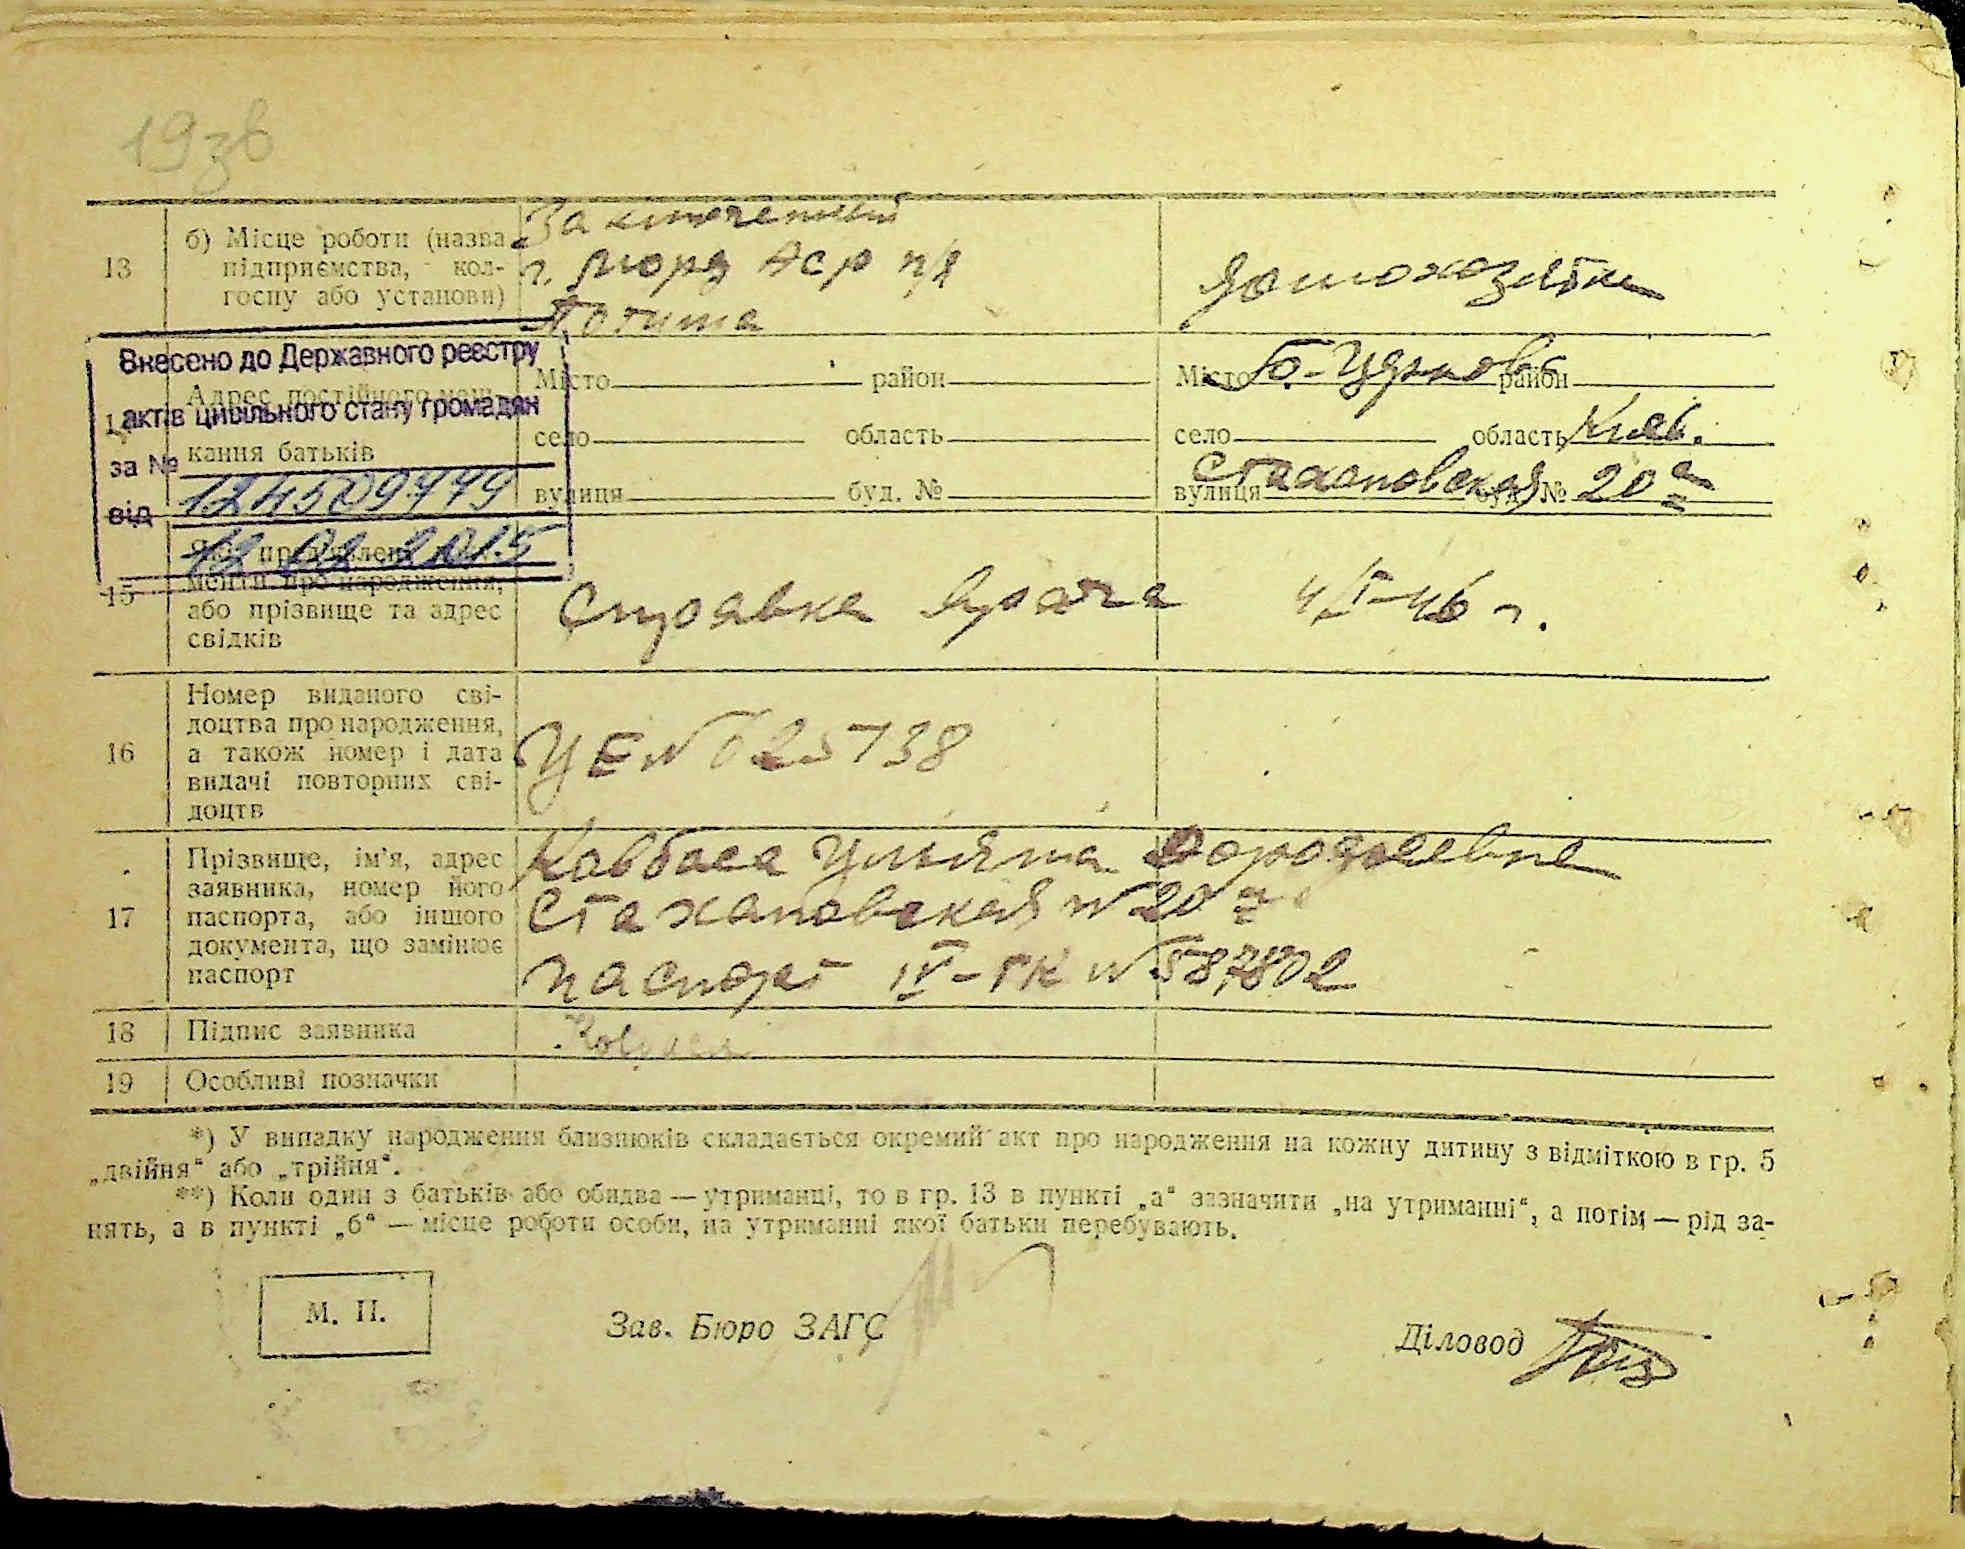 193в
13 б) Місце роботи (назва підприємства, кол-
госпу або установи)
Заключенный
г. Морд Аср п/я
Потьма
домохозяйка
Внесено до Державного реєстру
актів цивільного стану громадян
за № 124509779
від 12 02 2015
Адрес постійного меш-
кання батьків
Місто район
село область
вулиця буд. №
Місто район
село область Киев.
вулиця Стахановская буд. № 20 а
15 Які пред'явлені
менти про народження,
або прізвище та адрес
свідків
Справка врача 4/V-46 г.
16 Номер виданого сві-
доцтва про народження,
а також номер і дата
видачі повторних сві-
доцтв
УЕ № 025738
17 Прізвище, ім'я, адрес
заявника, номер його
паспорта, або іншого
документа, що замінює
паспорт
Ковбаса Ульяна
Стахановская № 20 а
паспорт IV-ГК № 587802
18 Підпис заявника
19 Особливі позначки
*) У випадку народження близнюків складається окремий акт про народження на кожну дитину з відміткою в гр. 5
„двійня“ або „трійня“.
**) Коли один з батьків або обидва — утриманці, то в гр. 13 в пункті „а“ зазначити „на утриманні“, а потім — рід за-
нять, а в пункті „б“ — місце роботи особи, на утриманні якої батьки перебувають.
М. П.
Зав. Бюро ЗАГС
Діловод